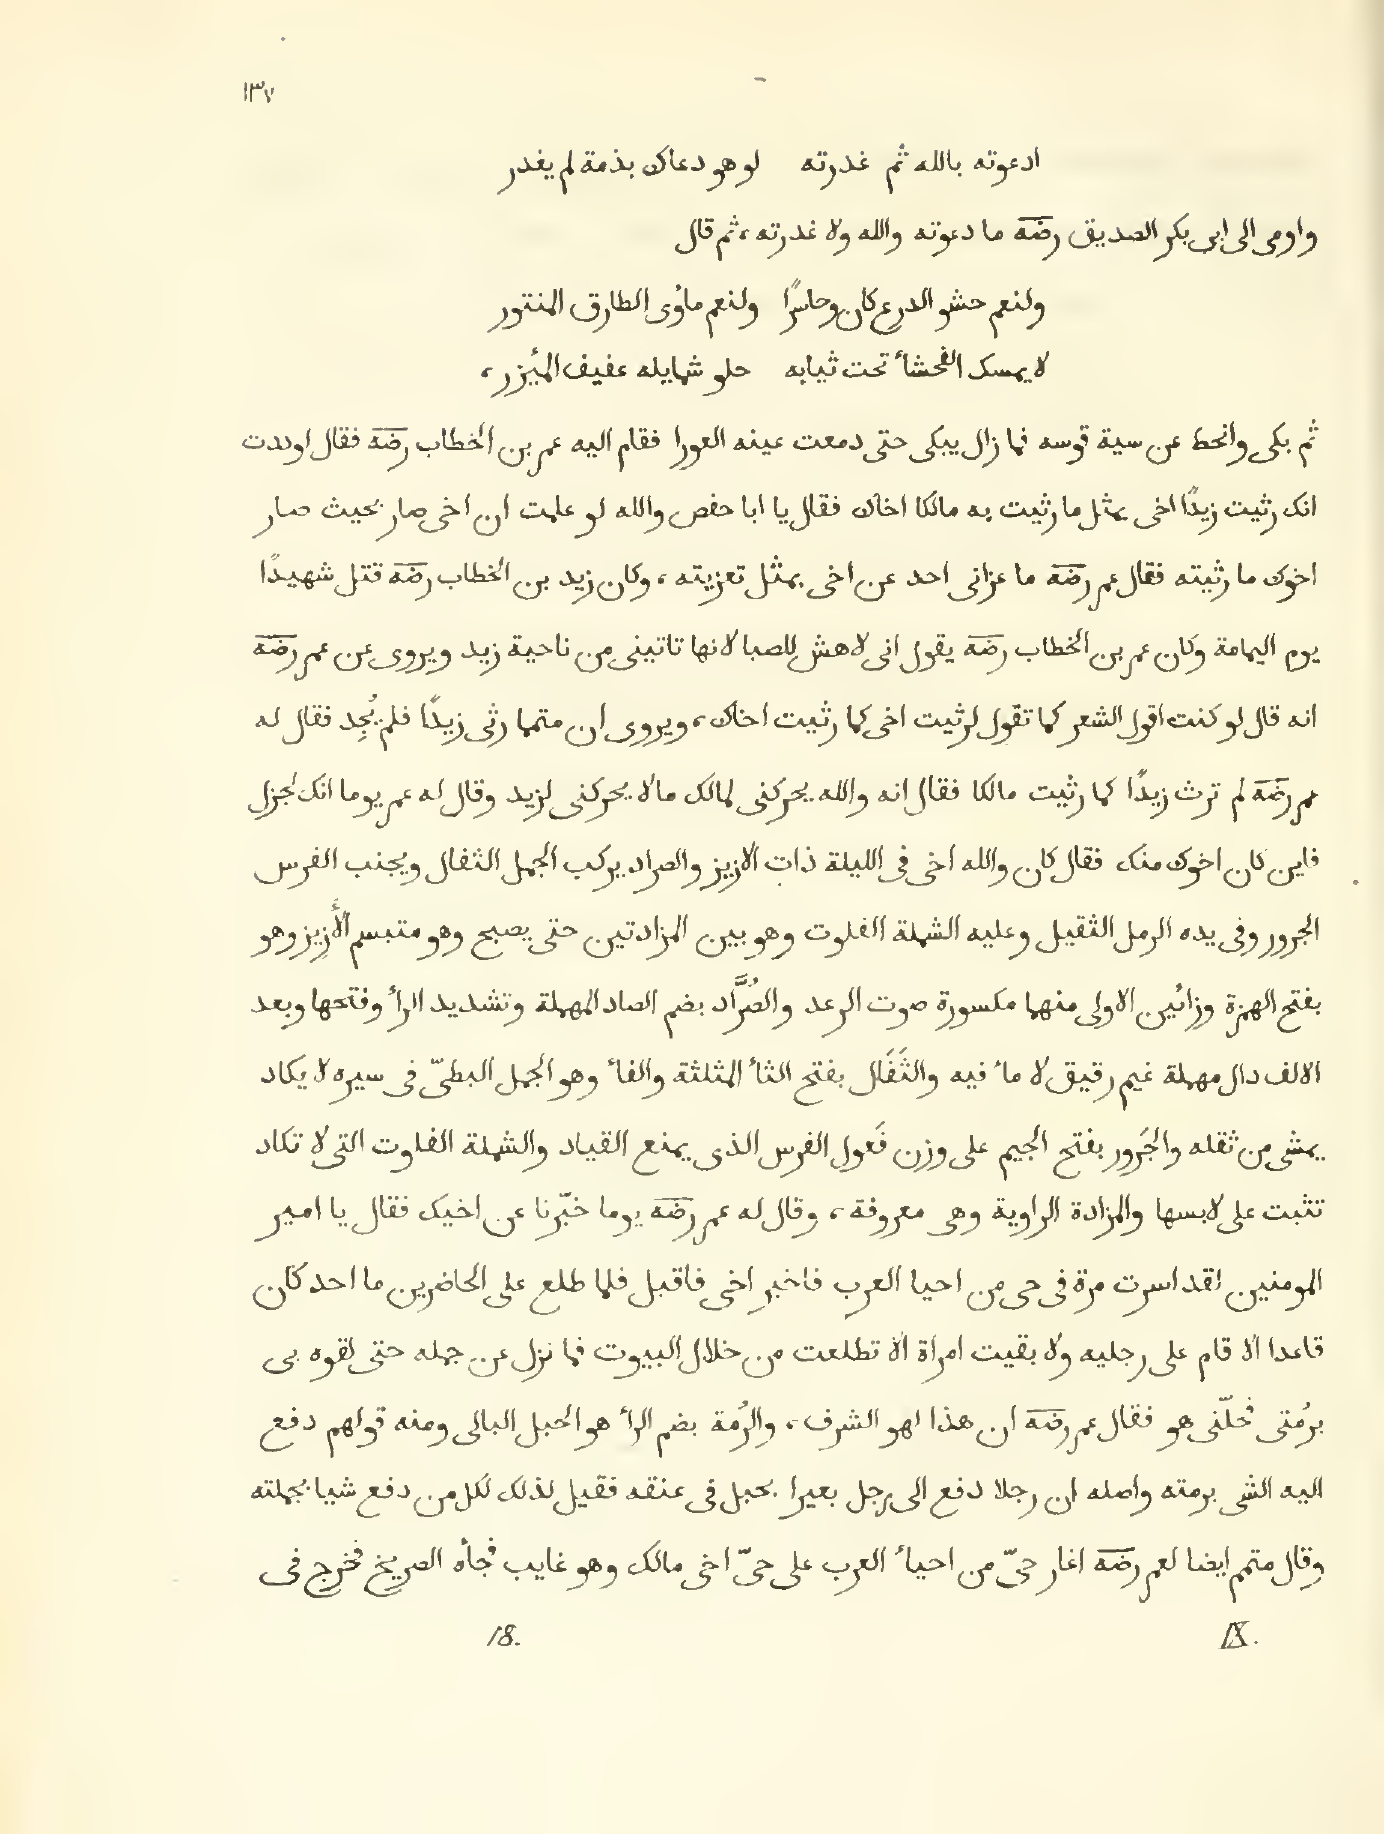 ١٣٧
ادعوته بالله ثم غدرته لو هو دعاك بذمة لم يغدر
واومى الى ابى بكر الصديق رضه ما دعوته والله ولا غدرته، ثم قال
ولنعم حشو الدرع كان وحاسرًا ولنعم ماوُى الطارق المنتور
لا يمسك الفحشاٴ تحت ثيابه حلو شمايله عفيف الميُزر،
ثم بكى وانحط عن سية قوسه فما زال يبكى حتى دمعت عينه العورا فقام اليه عمر بن الخطاب رضه فقال لوددت
انك رثيت زيدًا اخى بمثل ما رثيت به مالكا اخاك فقال يا ابا حفص والله لو علمت ان اخى صار بحيث صار
اخوك ما رثيته فقال عمر رضه ما عزانى احد عن اخى بمثل تعزيته، وكان زيد بن الخطاب رضه قتل شهيدًا
يوم اليمامة وكان عمر بن الخطاب رضه يقول انى لاهش للصبا لانها تاتينى من ناحية زيد ويروى عن عمر رضه
انه قال لو كنت اقول الشعر كما تقول لرثيت اخى كما رثيت اخاك، ويروى ان متمما رثى زيدًا فلم يُجِد فقال له
عمر رضه لم ترث زيدًا كما رثيت مالكا فقال انه والله يحركنى لمالك ما لا يحركنى لزيد وقال له عمر يوما انك لجزل
فاين كان اخوك منك فقال كان والله اخى فى الليلة ذات الازيز والصراد يركب الجمل الثفال ويجنب الفرس
الجرور وفى يده الرمل الثقيل وعليه الشملة الفلوت وهو بين المزادتين حتى يصبح وهو متبسم الأَزِيز وهو
بفتح الهمزة وزائين الاولى منهما مكسورة صوت الرعد والصُرَّاد بضم الصاد المهملة وتشديد الراٴ وفتحها وبعد
الالف دال مهملة غيم رقيق لا ماٴ فيه والثَفَال بفتح الثاٴ المثلثة والفاٴ وهو الجمل البطىّ فى سيره لا يكاد
يمشى من ثقله والجَرور بفتح الجيم على وزن فَعول الفرس الذى يمنع القياد والشملة الفلوت التى لا تكاد
تثبت على لابسها والمزادة الراوية وهى معروفة، وقال له عمر رضه يوما خبّرنا عن اخيك فقال يا امير
المومنين لقد اسرت مرة فى حى من احيا العرب فاخبر اخى فاقبل فلما طلع على الحاضرين ما احد كان
قاعدا الا قام على رجليه ولا بقيت امراة الا تطلعت من خلال البيوت فما نزل عن جمله حتى لقوه بى
برُمتى فحلّنى هو فقال عمر رضه ان هذا لهو الشرف، والرُمة بضم الراٴ هو الحبل البالى ومنه قولهم دفع
اليه الشى برمته واصله ان رجلا دفع الى رجل بعيرا بحبل فى عنقه فقيل لذلك لكل من دفع شيا بجملته
وقال متمم ايضا لعمر رضه اغار حىّ من احياٴ العرب على حىّ اخى مالك وهو غايب فجأه الصريخ فخرج فى
IX. 18.